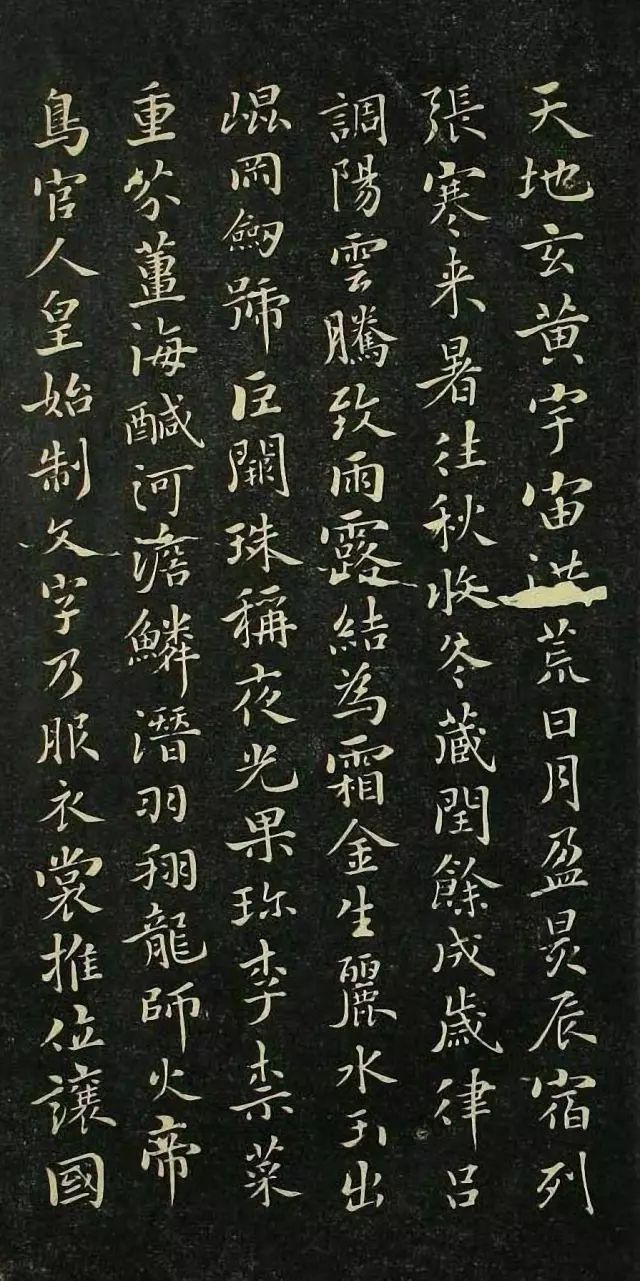 天地玄黄宇宙洪荒日月盈昃辰宿列
張寒来暑往秋收冬蔵閏餘成歲律吕
調陽雲騰致雨露結為霜金生麗水玉出
崐罔劒號巨闕珠稱夜光果珎李柰菜
重芥薑海醎河澹鱗潛羽翔龍師火帝
鳥官人皇始制文字乃服衣裳推位讓國